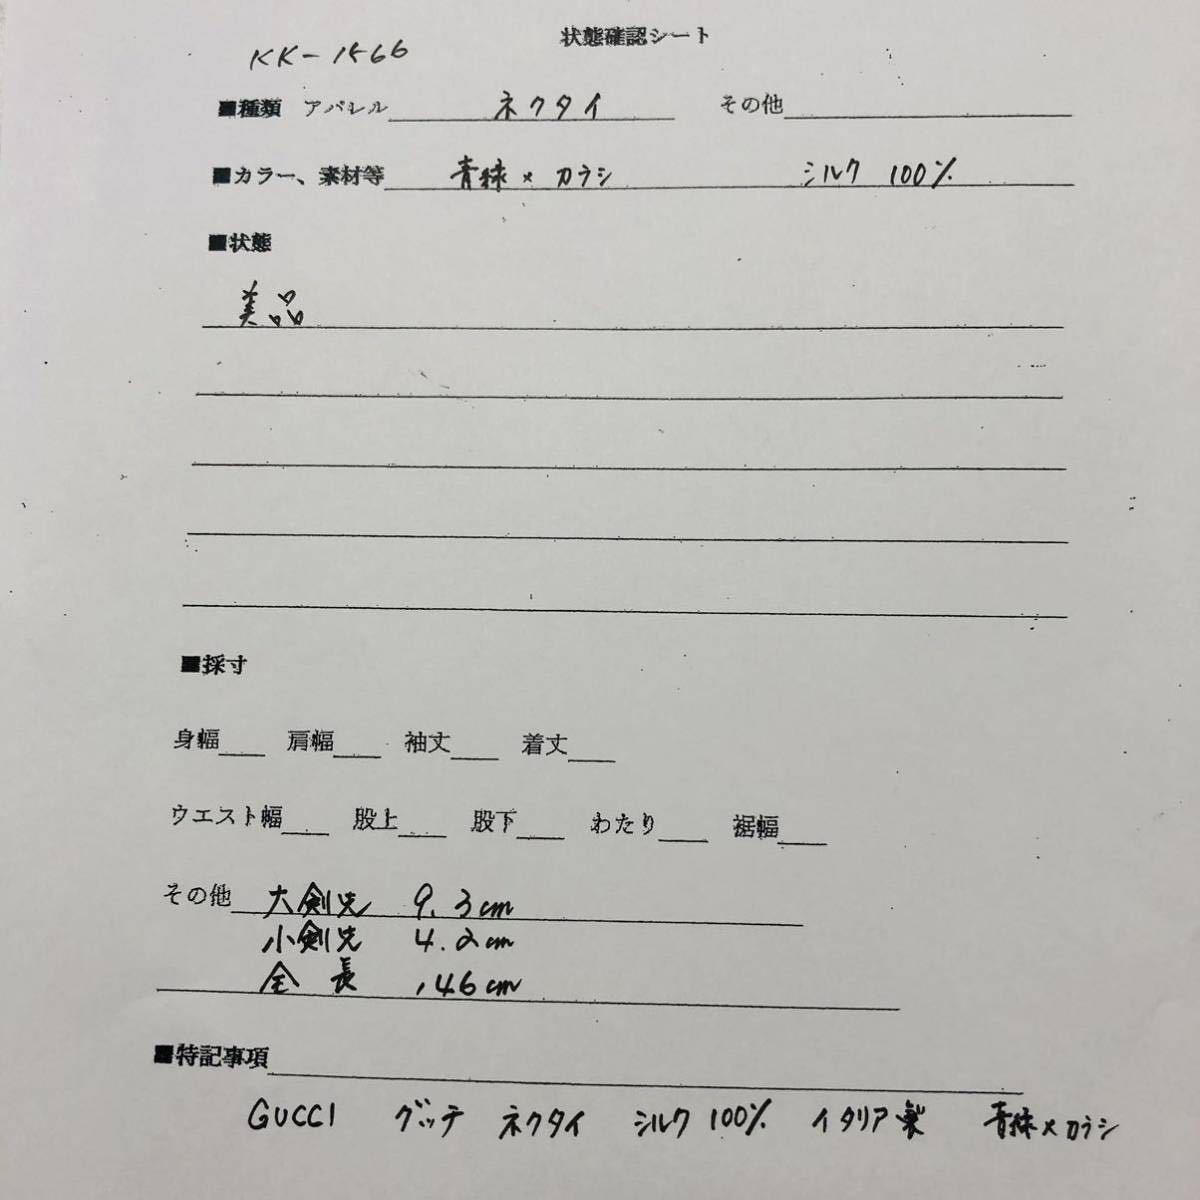 状態確認シート
KK-1566
■種類 アパレル ネクタイ その他
■カラー、素材等 青緑×カラシ シルク 100%
■状態
美品
■採寸
身幅 肩幅 袖丈 着丈
ウエスト幅 股上 股下 わたり 裾幅
その他 大剣先 9.3cm
小剣先 4.2cm
全長 146cm
■特記事項
GUCCI グッチ ネクタイ シルク 100% イタリア製 青緑×カラシ